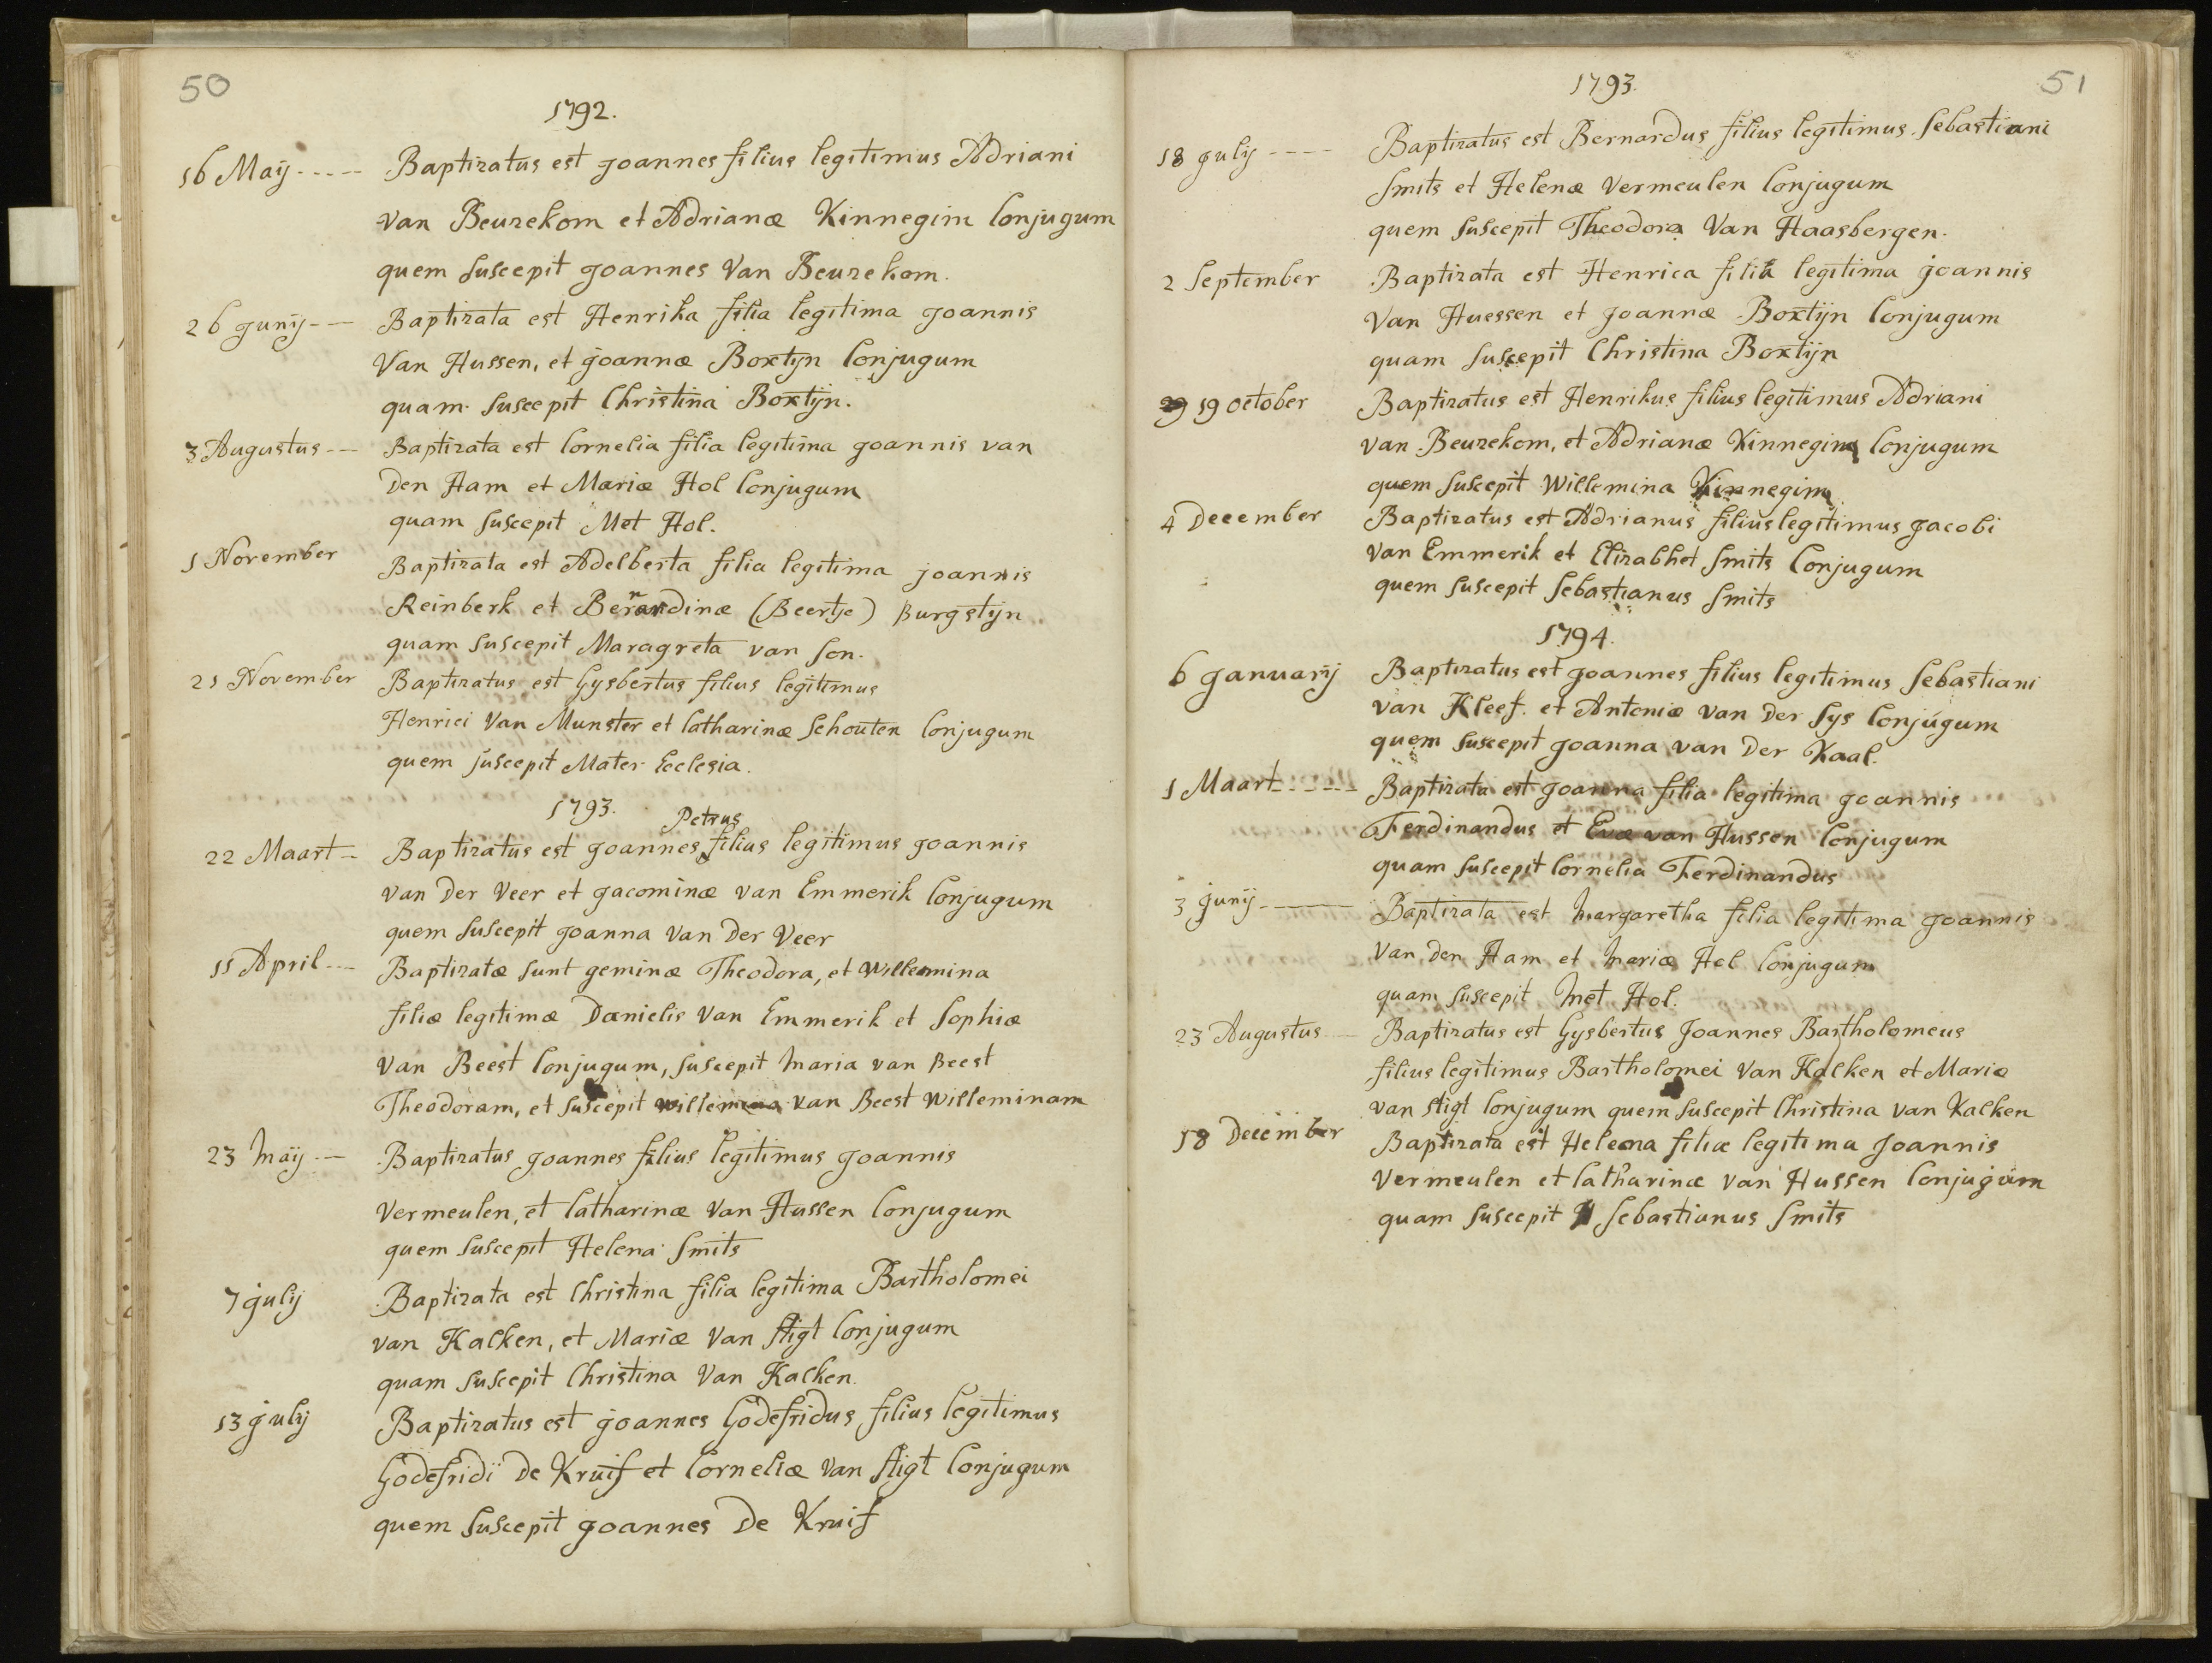 50
1792.
16 Maÿ - - - - - Baptizatus est Joannes filius legitimus Adriani
van Beuzekom et Adrianæ Kinnegim Conjugum
quem suscepit Joannes Van Beuzekom.
26 Junÿ - - - Baptizata est Henrika filia legitima Joannis
Van Hussen, et Joannæ Boxtÿn Conjugum
quam suscepit Christina Boxtÿn.
3 Augustus - - Baptizata est Cornelia filia legitima Joannis van
Den Ham et Mariæ Hol Conjugum
quam suscepit Met Hol.
1 November Baptizata est Adelberta filia legitima joannis
Reinberk et Bernardinæ (Beertje) Burgstÿn
quam suscepit Maragreta van Son.
21 November Baptizatus est Gysbertus filius legitimus
Henrici Van Munster et Catharinæ Schouten Conjugum
quem suscepit Mater Ecclesia.
1793.
Petrus
22 Maart - Baptizatus est Joannes filius legitimus Joannis
van Der Veer et Jacominæ van Emmerik Conjugum
quem suscepit Joanna Van Der Veer
11 April - - Baptizatæ sunt geminæ Theodora, et Willemina
filiæ legitimæ Danielis Van Emmerik et Sophiæ
Van Beest Conjugum, suscepit Maria van Beest
Theodoram, et suscepit Willemina van Beest Willeminam
23 Maÿ - - Baptizatus Joannes filius legitimus Joannis
Vermeulen, et Catharinæ Van Hussen Conjugum
quem suscepit Helena Smits
7 Julÿ Baptizata est Christina filia legitima Bartholomei
van Kalken, et Mariæ Van Stigt Conjugum
quam suscepit Christina Van Kalken.
13 Julÿ Baptizatus est Joannes Godefridus filius legitimus
Godefridi De Kruif et Corneliæ Van Stigt Conjugum
quem suscepit Joannes De Kruif
51
1793.
18 Julÿ - - - - Baptizatus est Bernardus filius legitimus Sebastiani
Smits et Helenæ Vermeulen Conjugum
quem suscepit Theodora Van Haasbergen.
2 September Baptizata est Henrica filia legitima Joannis
Van Huessen et Joannæ Boxtijn Conjugum
quam suscepit Christina Boxtijn
29 19 October Baptizatus est Henrikus filius legitimus Adriani
van Beuzekom, et Adrianæ Kinnegim Conjugum
quem suscepit Willemina Kinnegim
4 December Baptizatus est Adrianus filius legitimus Jacobi
Van Emmerik et Elizabhet Smits Conjugum
quem suscepit Sebastianus Smits
1794.
6 Januarÿ Baptizatus est Joannes filius legitimus Sebastiani
van Kleef. et Antoniæ van Der Sys Conjugum
quem suscepit Joanna van Der Kaal.
1 Maart - - - - - Baptizata est Joanna filia legitima Joannis
Ferdinandus et Evæ van Hussen Conjugum
quam suscepit Cornelia Ferdinandus
3 Junÿ - - - Baptizata est Margaretha filia legitima Joannis
Van Den Ham et Mariæ Hol Conjugum
quam suscepit Met Hol.
23 Augustus - Baptizatus est Gysbertus Joannes Bartholomeus
filius legitimus Bartholomei Van Kalken et Mariæ
van Stigt Conjugum quem suscepit Christina van Kalken
18 December Baptizata est Heleena filiæ legitima Joannis
Vermeulen et Catharinæ van Hussen Conjugum
quam suscepit Sebastianus Smits